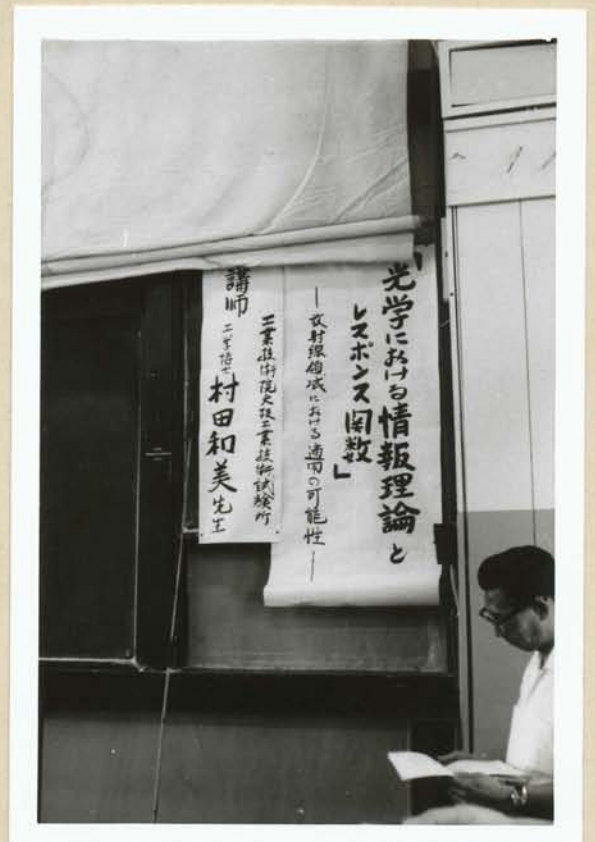 「光学における情報理論と
レスポンス関数」
―放射線領域における適用の可能性―
工業技術院大阪工業技術試験所
講師 工学博士 村田和美先生